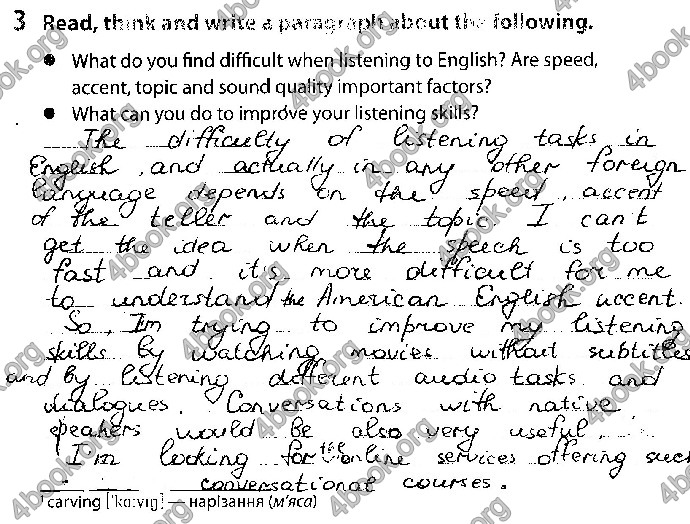 3 Read, think and write a paragraph about the following.
● What do you find difficult when listening to English? Are speed,
accent, topic and sound quality important factors?
● What can you do to improve your listening skills?
The difficulty of listening tasks in
English, and actually in any other foreign
language depends on the speed, accent
of the teller and the topic. I can't
get the idea when the speech is too
fast and it's more difficult for me
to understand the American English accent.
So, I'm trying to improve my listening
skills by watching movies without subtitles
and by listening different audio tasks and
dialogues. Conversations with native
speakers would be also very useful.
I'm looking for the online services offering such
conversational courses.
carving ['kɑ:vɪŋ] — нарізання (м'яса)
4book.org